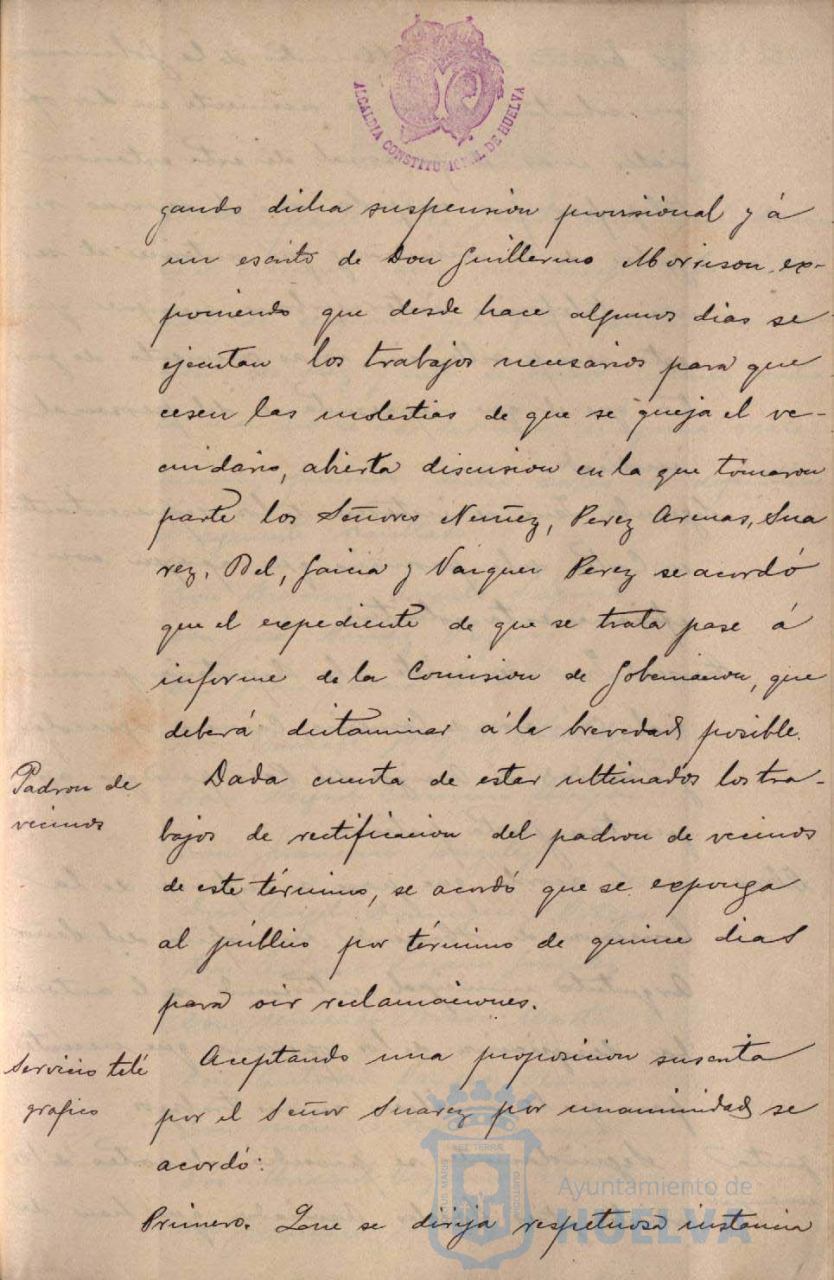 ALCALDIA CONSTITUCIONAL DE HUELVA
gando dicha suspension provisional y á
un escrito de Don Guillermo Morrison, ex-
poniendo que desde hace algunos dias se
ejecutan los trabajos necesarios para que
cesen las molestias de que se queja el ve-
cindario, abierta discusion en la que tomaron
parte los Señores Nuñez, Perez Arenas, Sua
rez, Bel, Garcia y Vazquez Perez se acordó
que el expediente de que se trata pase á
informe de la Comision de Gobernacion, que
deberá dictaminar á la brevedad posible.
Padron de
vecinos
Dada cuenta de estar ultimados los tra-
bajos de rectificacion del padron de vecinos
de este término, se acordó que se exponga
al público por término de quince dias
para oir reclamaciones.
Servicio telé
grafico
Aceptando una proposicion suscrita
por el Señor Suarez por unanimidad se
acordó:
Primero. Que se dirija respetuosa instancia
Ayuntamiento de
HUELVA